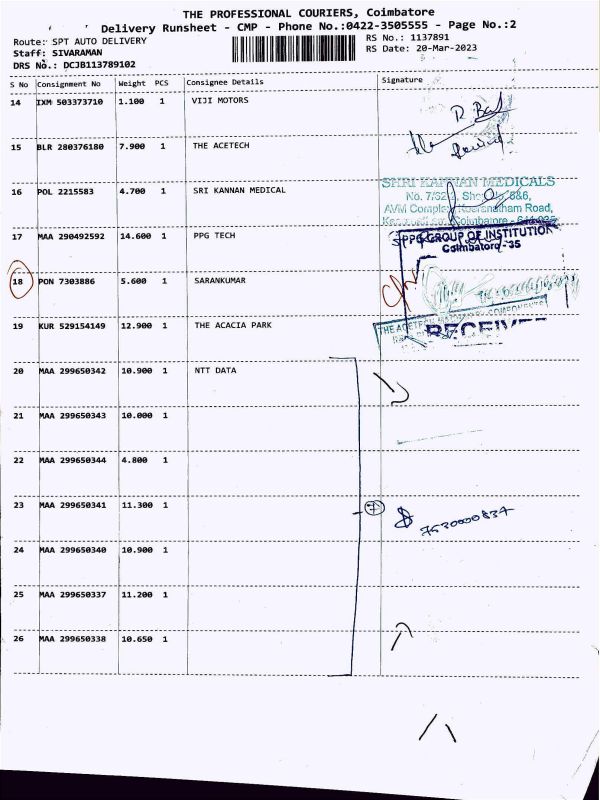 THE PROFESSIONAL COURIERS, Coimbatore
Delivery Runsheet - CMP - Phone No.:0422-3505555 - Page No.:2
Route: SPT AUTO DELIVERY
RS No.: 1137891
Staff: SIVARAMAN
RS Date: 20-Mar-2023
DRS No.: DCJB113789102
S No Consignment No Weight PCS Consignee Details Signature
14 IXM 503373710 1.100 1 VIJI MOTORS
15 BLR 280376180 7.900 1 THE ACETECH
16 POL 2215583 4.700 1 SRI KANNAN MEDICAL
SHRI KANNAN MEDICALS
AVM Complex
Road,
17 MAA 290492592 14.600 1 PPG TECH
PPG GROUP OF INSTITUTION
Coimbatore -35
18 PON 7303886 5.600 1 SARANKUMAR
19 KUR 529154149 12.900 1 THE ACACIA PARK
THE ACETECH
RECEIVED
20 MAA 299650342 10.900 1 NTT DATA
21 MAA 299650343 10.000 1
22 MAA 299650344 4.800 1
23 MAA 299650341 11.300 1
7
7530000834
24 MAA 299650340 10.900 1
25 MAA 299650337 11.200 1
26 MAA 299650338 10.650 1